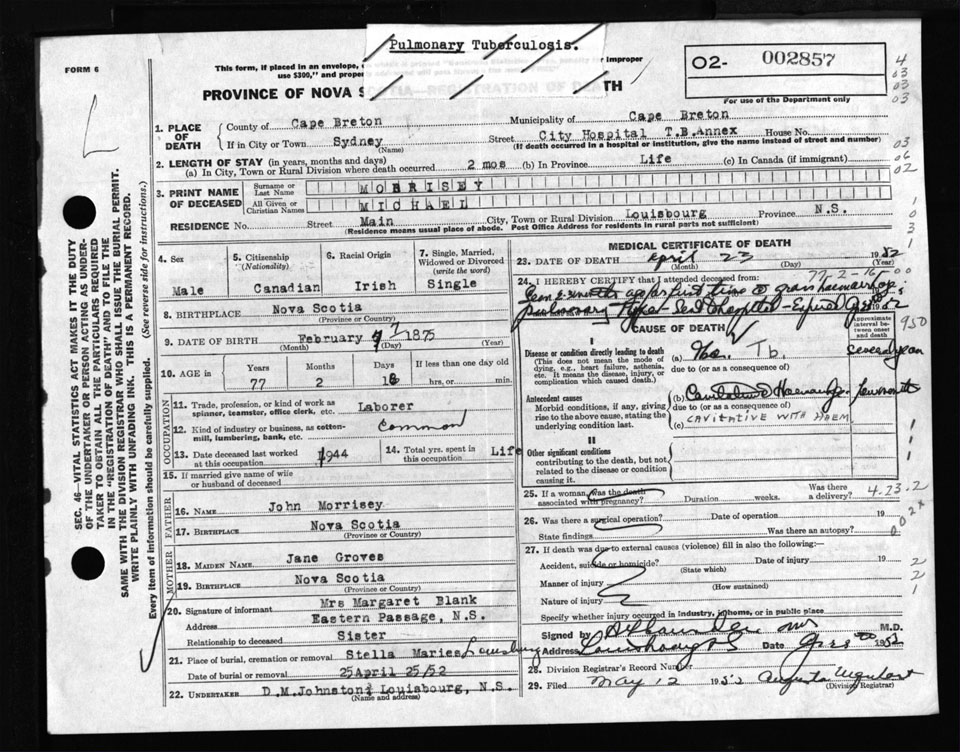 Pulmonary Tuberculosis.
FORM 6
This form, if placed in an envelope, improper
use $300," and proper
PROVINCE OF NOVA S TH
O2- 002857
For use of the Department only
1. PLACE OF DEATH County of Cape Breton Municipality of Cape Breton
If in City or Town Sydney (Name) Street City Hospital T.B.Annex House No.
(If death occurred in a hospital or institution, give the name instead of street and number)
2. LENGTH OF STAY (in years, months and days)
(a) In City, Town or Rural Division where death occurred 2 mos (b) In Province Life (c) In Canada (if immigrant)
3. PRINT NAME OF DECEASED Surname or Last Name MORRISEY
All Given or Christian Names MICHAEL
RESIDENCE No. Street Main City, Town or Rural Division Louisbourg Province N.S.
(Residence means usual place of abode. Post Office Address for residents in rural parts not sufficient)
4. Sex Male
5. Citizenship (Nationality) Canadian
6. Racial Origin Irish
7. Single, Married, Widowed or Divorced (write the word) Single
8. BIRTHPLACE Nova Scotia
(Province or Country)
9. DATE OF BIRTH February 7 1875
(Month) (Day) (Year)
10. AGE in Years 77 Months 2 Days 16 If less than one day old hrs. or min.
OCCUPATION
11. Trade, profession, or kind of work as spinner, teamster, office clerk, etc. Laborer
12. Kind of industry or business, as cotten-mill, lumbering, bank, etc. Common
13. Date deceased last worked at this occupation 1944
14. Total yrs. spent in this occupation Life
15. If married give name of wife or husband of deceased
FATHER
16. NAME John Morrisey
17. BIRTHPLACE Nova Scotia
(Province or Country)
MOTHER
18. MAIDEN NAME Jane Groves
19. BIRTHPLACE Nova Scotia
(Province or Country)
20. Signature of informant Mrs Margaret Blank
Address Eastern Passage, N.S.
Relationship to deceased Sister
21. Place of burial, cremation or removal Stella Maries Louisburg
Date of burial or removal 25 April 25/52
22. UNDERTAKER D.M.Johnston Louisbourg, N.S.
(Name and address)
MEDICAL CERTIFICATE OF DEATH
23. DATE OF DEATH April 23 1952
(Month) (Day) (Year)
24. I HEREBY CERTIFY that I attended deceased from: 77-2-16
CAUSE OF DEATH
Approximate interval between onset and death
I
Disease or condition directly leading to death
(This does not mean the mode of dying, e.g., heart failure, asthenia, etc. It means the disease, injury, or complication which caused death.)
(a) Tb.
due to (or as a consequence of)
Antecedent causes
Morbid conditions, if any, giving rise to the above cause, stating the underlying condition last.
(b)
due to (or as a consequence of)
CAVITATIVE WITH HAEM.
(c)
II
Other significant conditions
contributing to the death, but not related to the disease or condition causing it.
25. If a woman, was the death associated with pregnancy? Duration weeks. Was there a delivery? 4-23-2
26. Was there a surgical operation? Date of operation 19
State findings Was there an autopsy?
27. If death was due to external causes (violence) fill in also the following:
Accident, suicide or homicide? (State which) Date of injury 19
Manner of injury (How sustained)
Nature of injury
Specify whether injury occurred in industry, in home, or in public place
Signed by M.D.
Address Date 1952
28. Division Registrar's Record Number
29. Filed May 12 1952 Augusta Urquhart
(Division Registrar)
SEC. 46—VITAL STATISTICS ACT MAKES IT THE DUTY
OF THE UNDERTAKER OR PERSON ACTING AS UNDER-
TAKER TO OBTAIN ALL THE PARTICULARS REQUIRED
IN THE "REGISTRATION OF DEATH" AND TO FILE THE
SAME WITH THE DIVISION REGISTRAR WHO SHALL ISSUE THE BURIAL PERMIT.
WRITE PLAINLY WITH UNFADING INK. THIS IS A PERMANENT RECORD.
Every item of information should be carefully supplied. (See reverse side for instructions.)